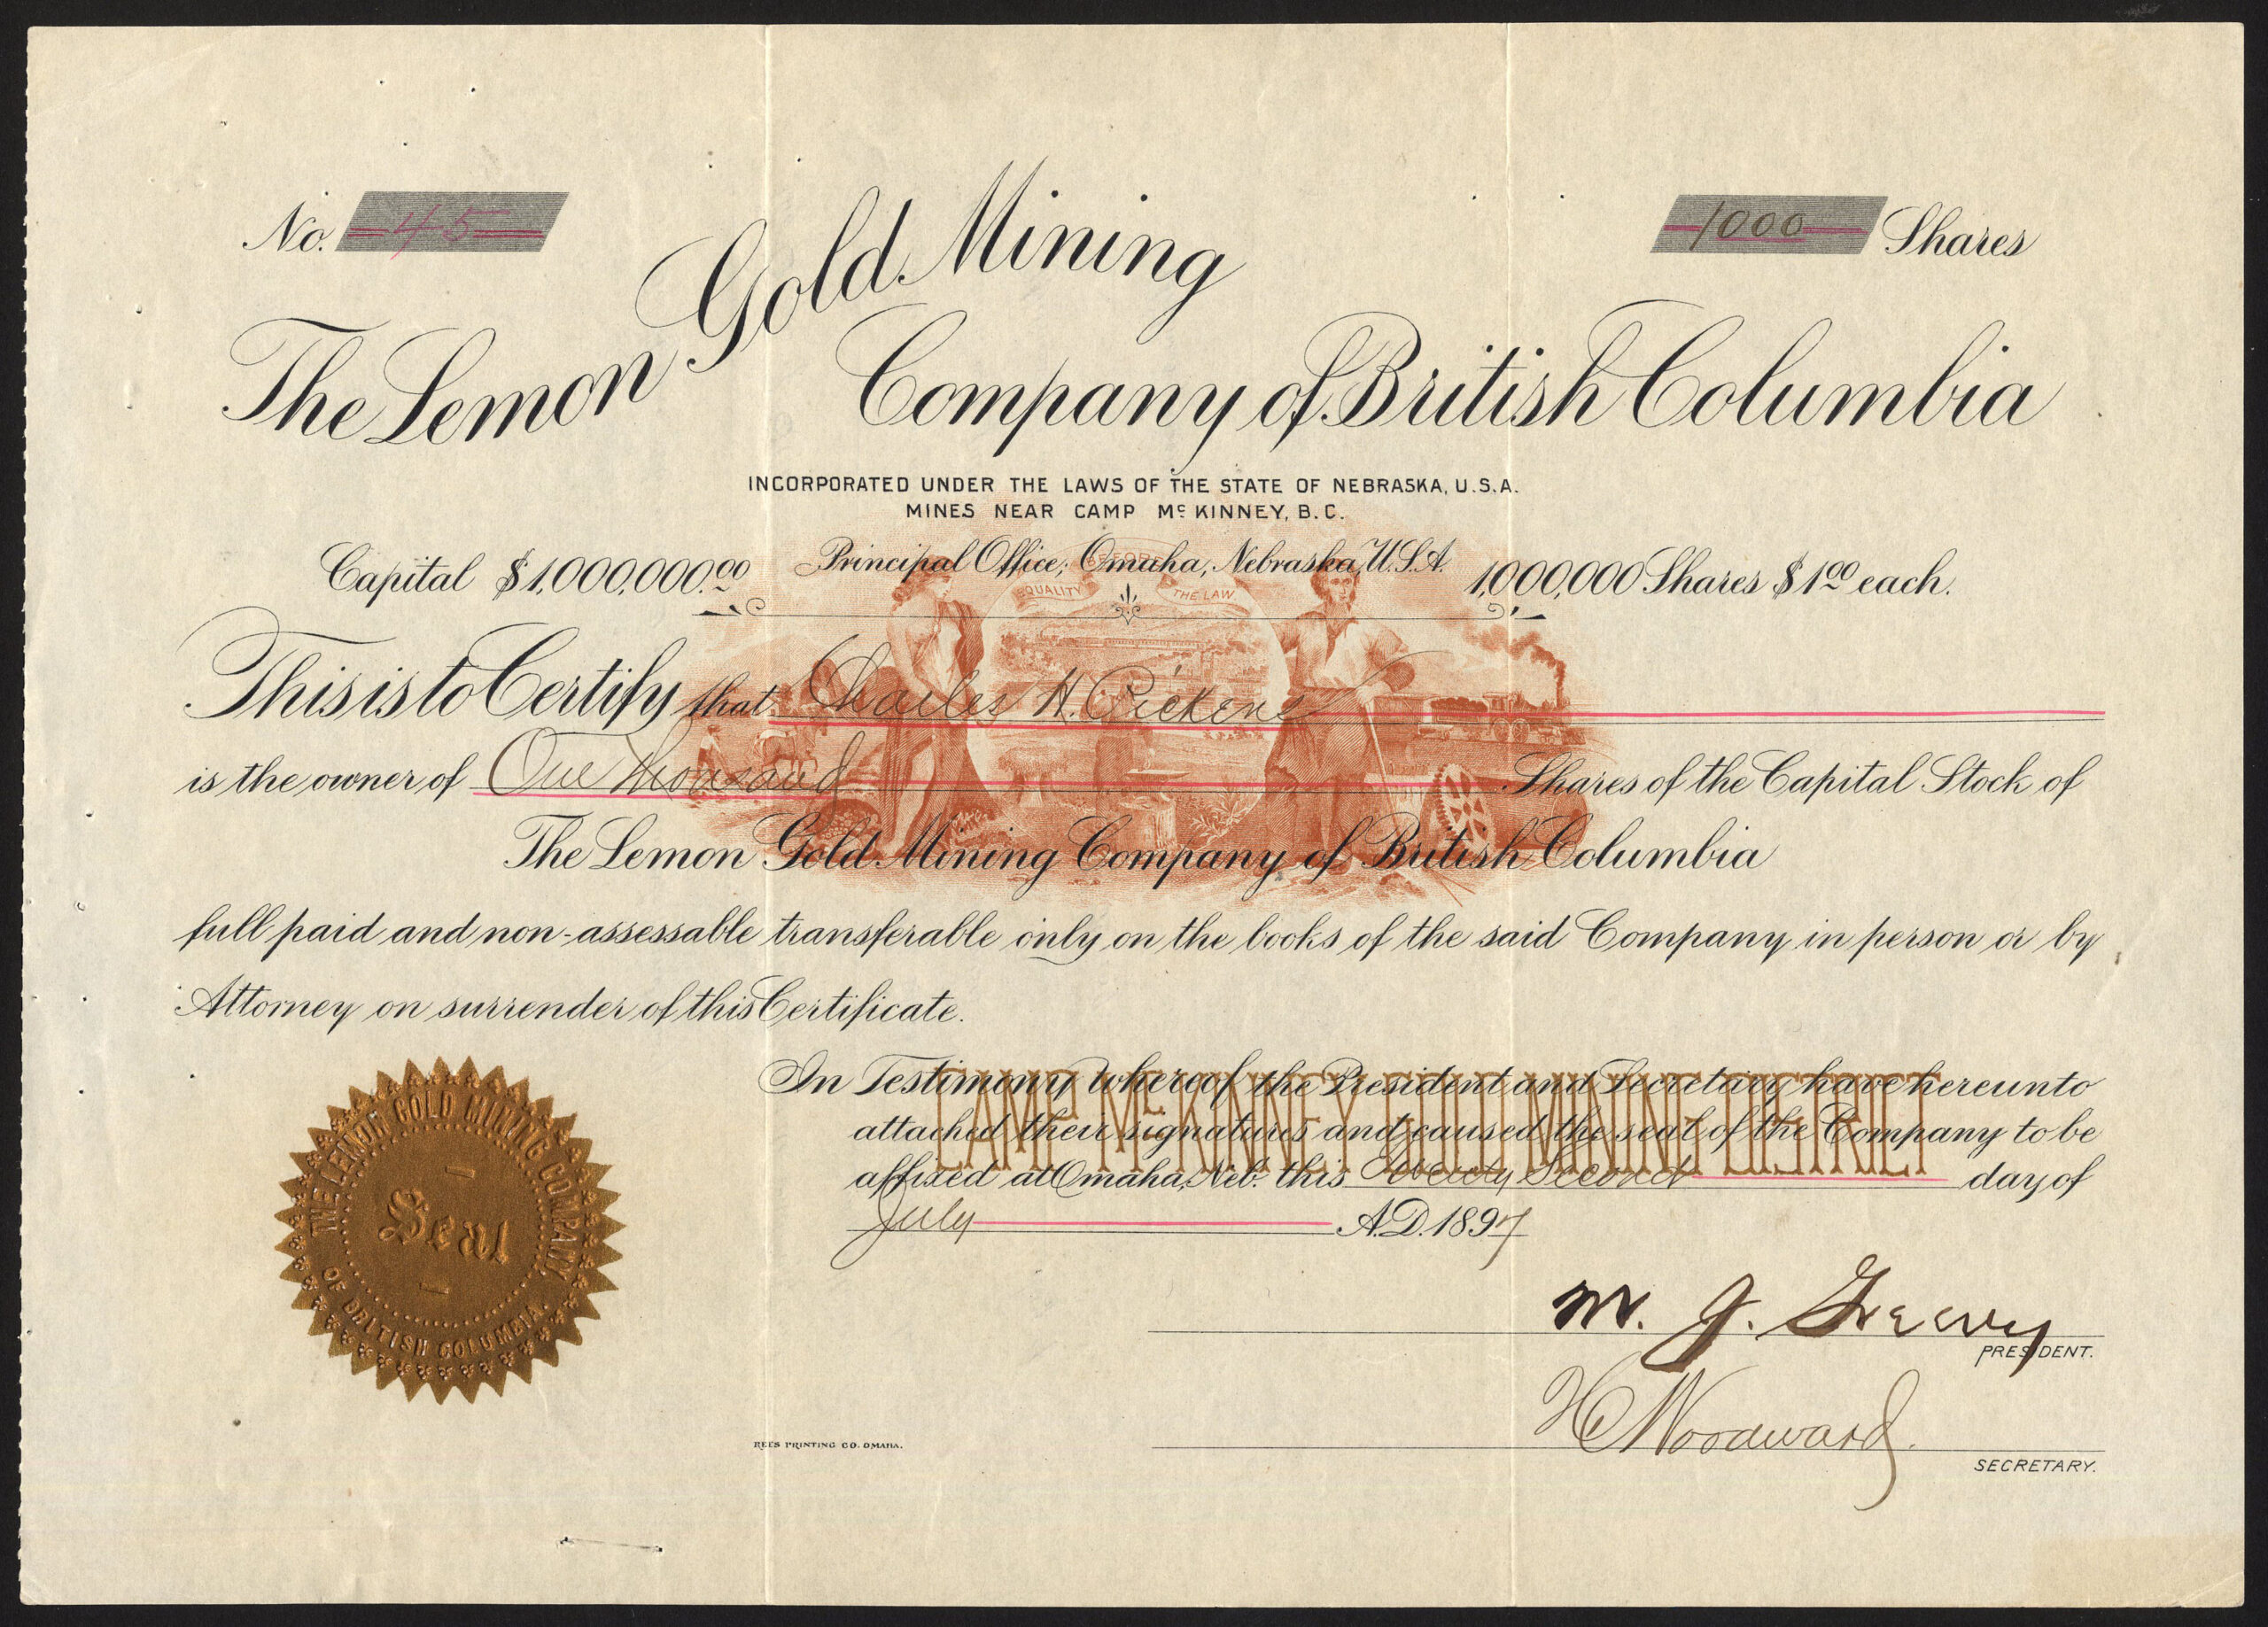 No. 45
1000 Shares
The Lemon Gold Mining
Company of British Columbia
INCORPORATED UNDER THE LAWS OF THE STATE OF NEBRASKA, U.S.A.
MINES NEAR CAMP Mc KINNEY, B.C.
Capital $1,000,000.00 Principal Office; Omaha, Nebraska, U.S.A. 1,000,000 Shares $1.00 each.
EQUALITY BEFORE THE LAW
This is to Certify that Charles H. Pickens
is the owner of One Thousand Shares of the Capital Stock of
The Lemon Gold Mining Company of British Columbia
full paid and non-assessable transferable only on the books of the said Company in person or by
Attorney on surrender of this Certificate.
In Testimony whereof the President and Secretary have hereunto
attached their signatures and caused the seal of the Company to be
affixed at Omaha, Neb. this Twenty Second day of
July A.D. 1897
CAMP Mc KINNEY GOLD MINING DISTRICT
THE LEMON GOLD MINING COMPANY
OF BRITISH COLUMBIA.
Seal
M. J. Greevy
PRESIDENT.
Woodward.
SECRETARY.
REES PRINTING CO. OMAHA.